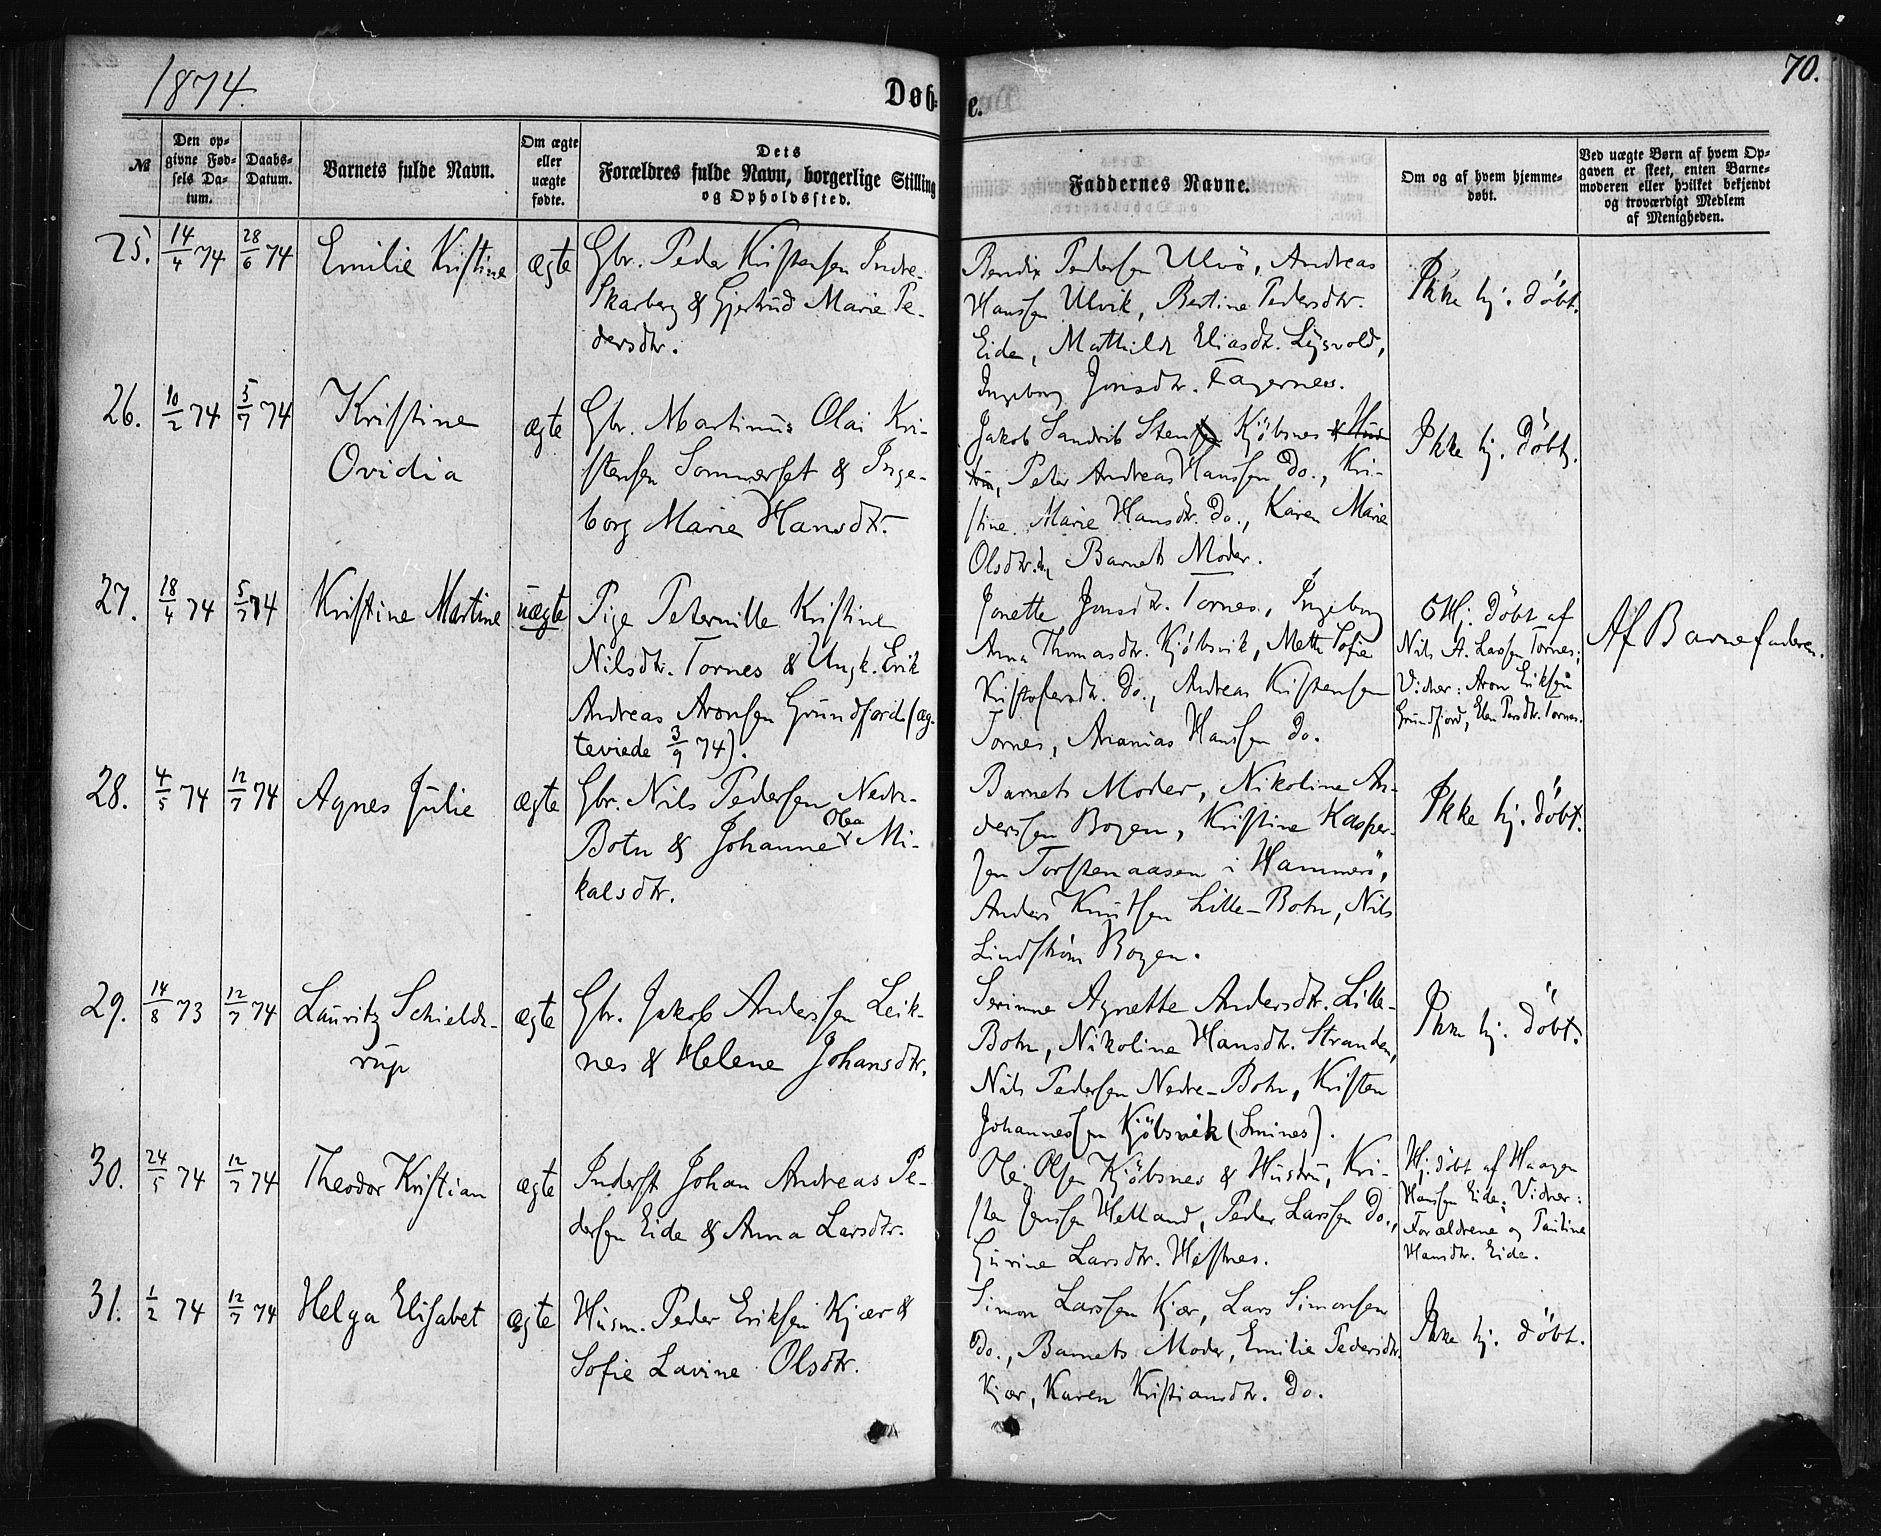 1874.
Døbte.
70.
№
Den op-
givne Fød-
sels Da-
tum.
Daabs-
Datum.
Barnets fulde Navn.
Om ægte
eller
uægte
fødte.
Dets
Forældres fulde Navn, borgerlige Stilling
og Opholdssted.
Faddernes Navne.
Om og af hvem hjemme-
døbt.
Ved uægte Børn af hvem Op-
gaven er skeet, enten Barne-
moderen eller hvilket bekjendt
og troværdigt Medlem
af Menigheden.
25.
14/4 74
28/6 74
Emilie Kristine
ægte
Gbr. Peder Kristensen Indre-
Skarberg & Gjertrud Marie Pe-
dersdtr.
Bendix Pedersen Ulvö, Andreas
Hanssen Ulvik, Bertine Pedersdtr.
Eide, Mathilde Eliasdtr. Lysvold,
Ingeborg Jonsdtr. Fagernes.
Ikke hj. döbt.
26.
10/2 74
5/7 74
Kristine
Ovidia
ægte
Gbr. Martinus Olai Kri-
stensen Sommerset & Inge-
borg Marie Hansdtr.
Jakob Sandrib Kjøbsnes & Hus-
tru, Peter Andreas Hanssen Do., Kri-
stine Marie Hansdtr. Do., Karen Marie
Olsdtr. Barnets Moder.
Ikke hj. döbt.
27.
18/4 74
5/7 74
Kristine Martine
uægte
Pige Petermille Kristine
Nilsdtr. Tornes & Ungk. Erik
Andreas Aronsen Grundfjord (æg-
teviede 3/9 74).
Jonette Jonsdtr. Tornes, Ingeborg
Anna Thomasdtr. Kjøbsvik, Mette Sofie
Kristofersdtr. Do., Andreas Kristensen
Tornes, Ananias Hanssen Do.
Hj. döbt af
Nils A. Larssen Tornes;
Vidner: Aron Eriksen
Grundfjord, Elen Parsdtr. Tornes.
Af Barnefaderen.
28.
4/5 74
12/7 74
Agnes Julie
ægte
Gbr. Nils Pedersen Nedre-
Botn & Johanne Olea Mi-
kalsdtr.
Barnets Moder, Nikoline An-
derssen Bogen, Kristine Kasper-
sen Torstenaasen i Hammerö,
Anders Knutsen Lille-Botn, Nils
Lindstrøm Bogen.
Ikke hj. döbt.
29.
14/8 73
12/7 74
Lauritz Schielde-
rup
ægte
Gbr. Jakob Anderssen Leik-
nes & Helene Johansdtr.
Serinne Agnette Andersdtr. Lille-
Botn, Nikoline Hansdtr. Stranden,
Nils Pedersen Nedre-Botn, Kristen
Johannessen Kjöbsvik (Smines).
Ikke hj. döbt.
30.
24/5 74
12/7 74
Theodor Kristian
ægte
Inderst Johan Andreas Pe-
dersen Eide & Anna Larsdtr.
Ole Olsen Kjöbsnes & Hustru, Kri-
sten Jenssen Helland, Peder Larssen Do.,
Gurine Larsdtr. Hestnes.
Hj. döbt af Haagen
Hansen Eide; Vidner:
Forældrene og Pauline
Hansdtr. Eide.
31.
1/2 74
12/7 74
Helga Elisabet
ægte
Husm. Peder Eriksen Kjær &
Sofie Lavine Olsdtr.
Simon Larssen Kjær, Lars Simonsen
Do., Barnets Moder, Emilie Pedersdtr.
Kjær, Karen Kristiansdtr. Do.
Ikke hj. döbt.